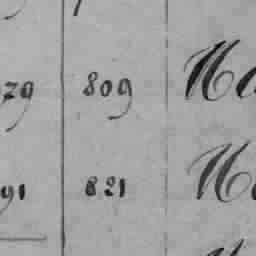 79 809 Ma
91 821 Ma